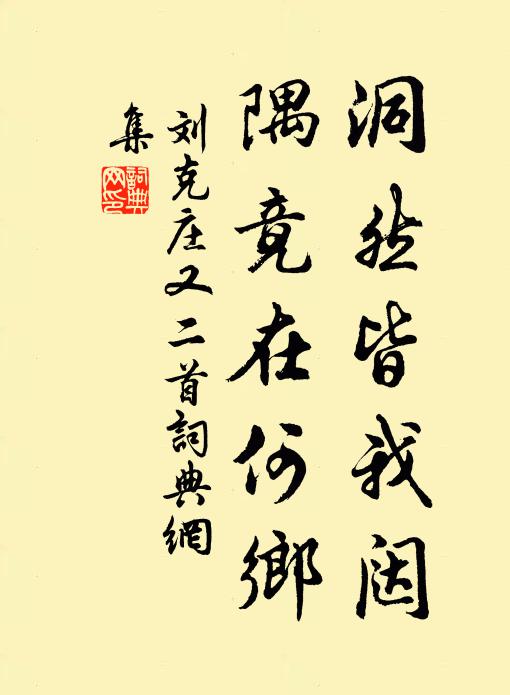 洞然皆我闼
隅竟在何鄉
刘克庄又二首詞典網
集
詞典网印